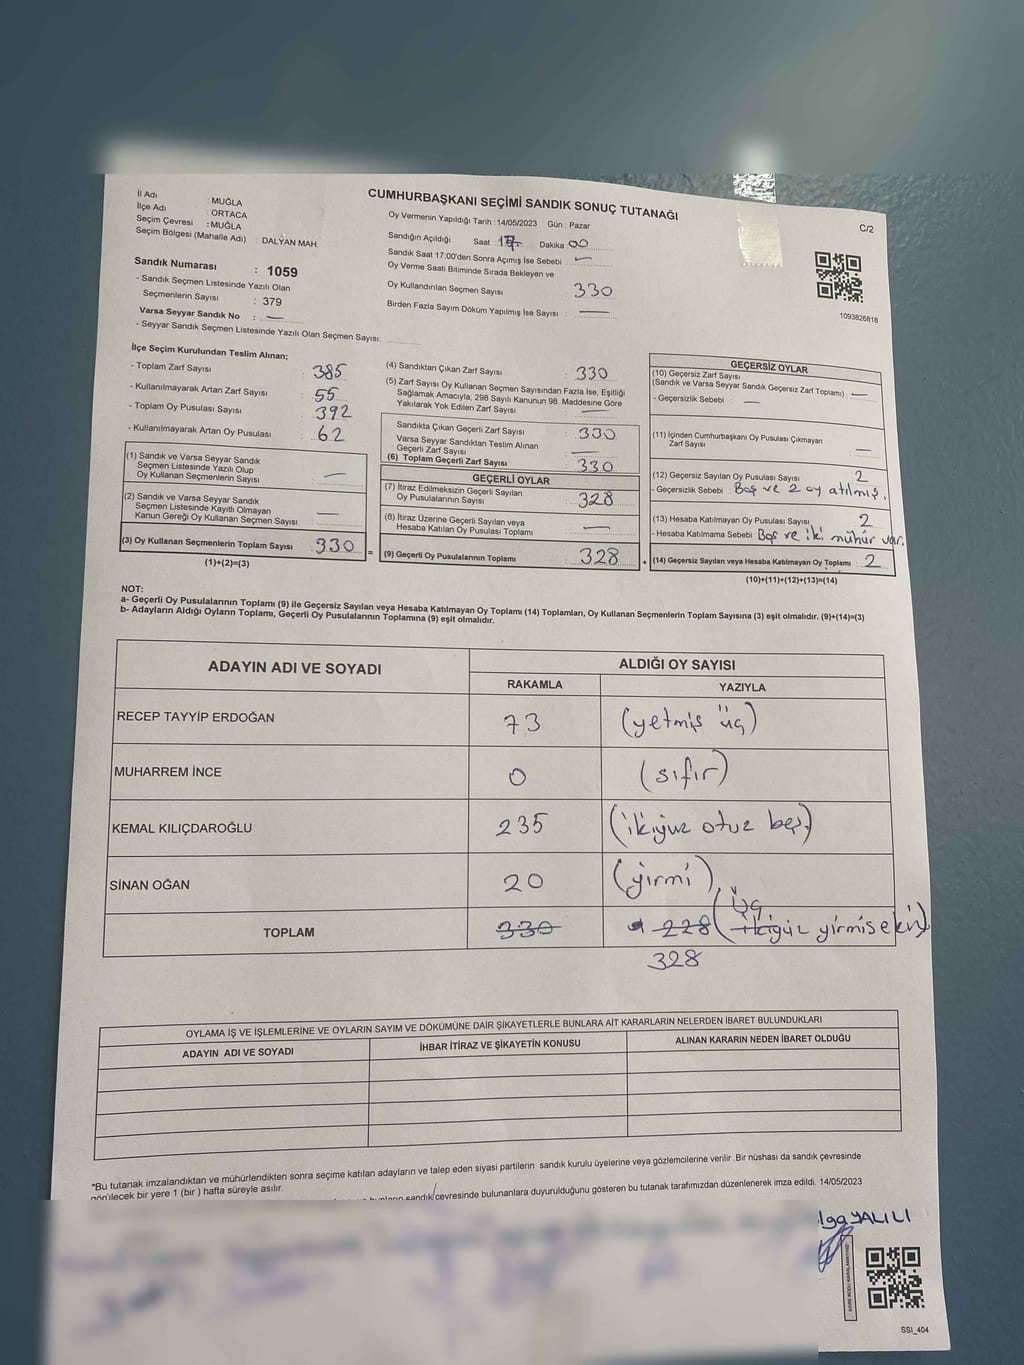 CUMHURBAŞKANI SEÇİMİ SANDIK SONUÇ TUTANAĞI
C/2
İl Adı : MUĞLA
İlçe Adı : ORTACA
Seçim Çevresi : MUĞLA
Seçim Bölgesi (Mahalle Adı) : DALYAN MAH.
Sandık Numarası : 1059
- Sandık Seçmen Listesinde Yazılı Olan
Seçmenlerin Sayısı : 379
Varsa Seyyar Sandık No : —
- Seyyar Sandık Seçmen Listesinde Yazılı Olan Seçmen Sayısı:
Oy Vermenin Yapıldığı Tarih : 14/05/2023 Gün : Pazar
Sandığın Açıldığı Saat 17 Dakika 00
Sandık Saat 17:00'den Sonra Açımış İse Sebebi : —
Oy Verme Saati Bitiminde Sırada Bekleyen ve
Oy Kullandırılan Seçmen Sayısı : 330
Birden Fazla Sayım Döküm Yapılmış İse Sayısı : —
1093826818
İlçe Seçim Kurulundan Teslim Alınan;
- Toplam Zarf Sayısı : 385
- Kullanılmayarak Artan Zarf Sayısı : 55
- Toplam Oy Pusulası Sayısı : 392
- Kullanılmayarak Artan Oy Pusulası : 62
(1) Sandık ve Varsa Seyyar Sandık
Seçmen Listesinde Yazılı Olup
Oy Kullanan Seçmenlerin Sayısı : —
(2) Sandık ve Varsa Seyyar Sandık
Seçmen Listesinde Kayıtlı Olmayan
Kanun Gereği Oy Kullanan Seçmen Sayısı : —
(3) Oy Kullanan Seçmenlerin Toplam Sayısı : 330 =
(1)+(2)=(3)
(4) Sandıktan Çıkan Zarf Sayısı : 330
(5) Zarf Sayısı Oy Kullanan Seçmen Sayısından Fazla İse, Eşitliği
Sağlamak Amacıyla, 298 Sayılı Kanunun 98. Maddesine Göre
Yakılarak Yok Edilen Zarf Sayısı : —
Sandıkta Çıkan Geçerli Zarf Sayısı : 330
Varsa Seyyar Sandıktan Teslim Alınan
Geçerli Zarf Sayısı : —
(6) Toplam Geçerli Zarf Sayısı : 330
GEÇERLİ OYLAR
(7) İtiraz Edilmeksizin Geçerli Sayılan
Oy Pusulalarının Sayısı : 328
(8) İtiraz Üzerine Geçerli Sayılan veya
Hesaba Katılan Oy Pusulası Toplamı : —
(9) Geçerli Oy Pusulalarının Toplamı : 328 +
GEÇERSİZ OYLAR
(10) Geçersiz Zarf Sayısı
(Sandık ve Varsa Seyyar Sandık Geçersiz Zarf Toplamı) : —
- Geçersizlik Sebebi : —
(11) İçinden Cumhurbaşkanı Oy Pusulası Çıkmayan
Zarf Sayısı : —
(12) Geçersiz Sayılan Oy Pusulası Sayısı : 2
- Geçersizlik Sebebi : Boş ve 2 oy atılmış.
(13) Hesaba Katılmayan Oy Pusulası Sayısı : 2
- Hesaba Katılmama Sebebi : Boş ve iki mühür var.
(14) Geçersiz Sayılan veya Hesaba Katılmayan Oy Toplamı : 2
(10)+(11)+(12)+(13)=(14)
NOT:
a- Geçerli Oy Pusulalarının Toplamı (9) ile Geçersiz Sayılan veya Hesaba Katılmayan Oy Toplamı (14) Toplamları, Oy Kullanan Seçmenlerin Toplam Sayısına (3) eşit olmalıdır. (9)+(14)=(3)
b- Adayların Aldığı Oyların Toplamı, Geçerli Oy Pusulalarının Toplamına (9) eşit olmalıdır.
ADAYIN ADI VE SOYADI ALDIĞI OY SAYISI
RAKAMLA YAZIYLA
RECEP TAYYİP ERDOĞAN 73 (yetmiş üç)
MUHARREM İNCE 0 (sıfır)
KEMAL KILIÇDAROĞLU 235 (ikiyüz otuz beş)
SİNAN OĞAN 20 (yirmi)
TOPLAM 330 228 (Üç ikiyüz yirmisekiz)
328
OYLAMA İŞ VE İŞLEMLERİNE VE OYLARIN SAYIM VE DÖKÜMÜNE DAİR ŞİKAYETLERLE BUNLARA AİT KARARLARIN NELERDEN İBARET BULUNDUKLARI
ADAYIN ADI VE SOYADI İHBAR İTİRAZ VE ŞİKAYETİN KONUSU ALINAN KARARIN NEDEN İBARET OLDUĞU
*Bu tutanak imzalandıktan ve mühürlendikten sonra seçime katılan adayların ve talep eden siyasi partilerin sandık kurulu üyelerine veya gözlemcilerine verilir .Bir nüshası da sandık çevresinde
görülecek bir yere 1 (bir ) hafta süreyle asılır.
sandık çevresinde bulunanlara duyurulduğunu gösteren bu tutanak tarafımızdan düzenlenerek imza edildi. 14/05/2023
lga YALILI
SSI_404